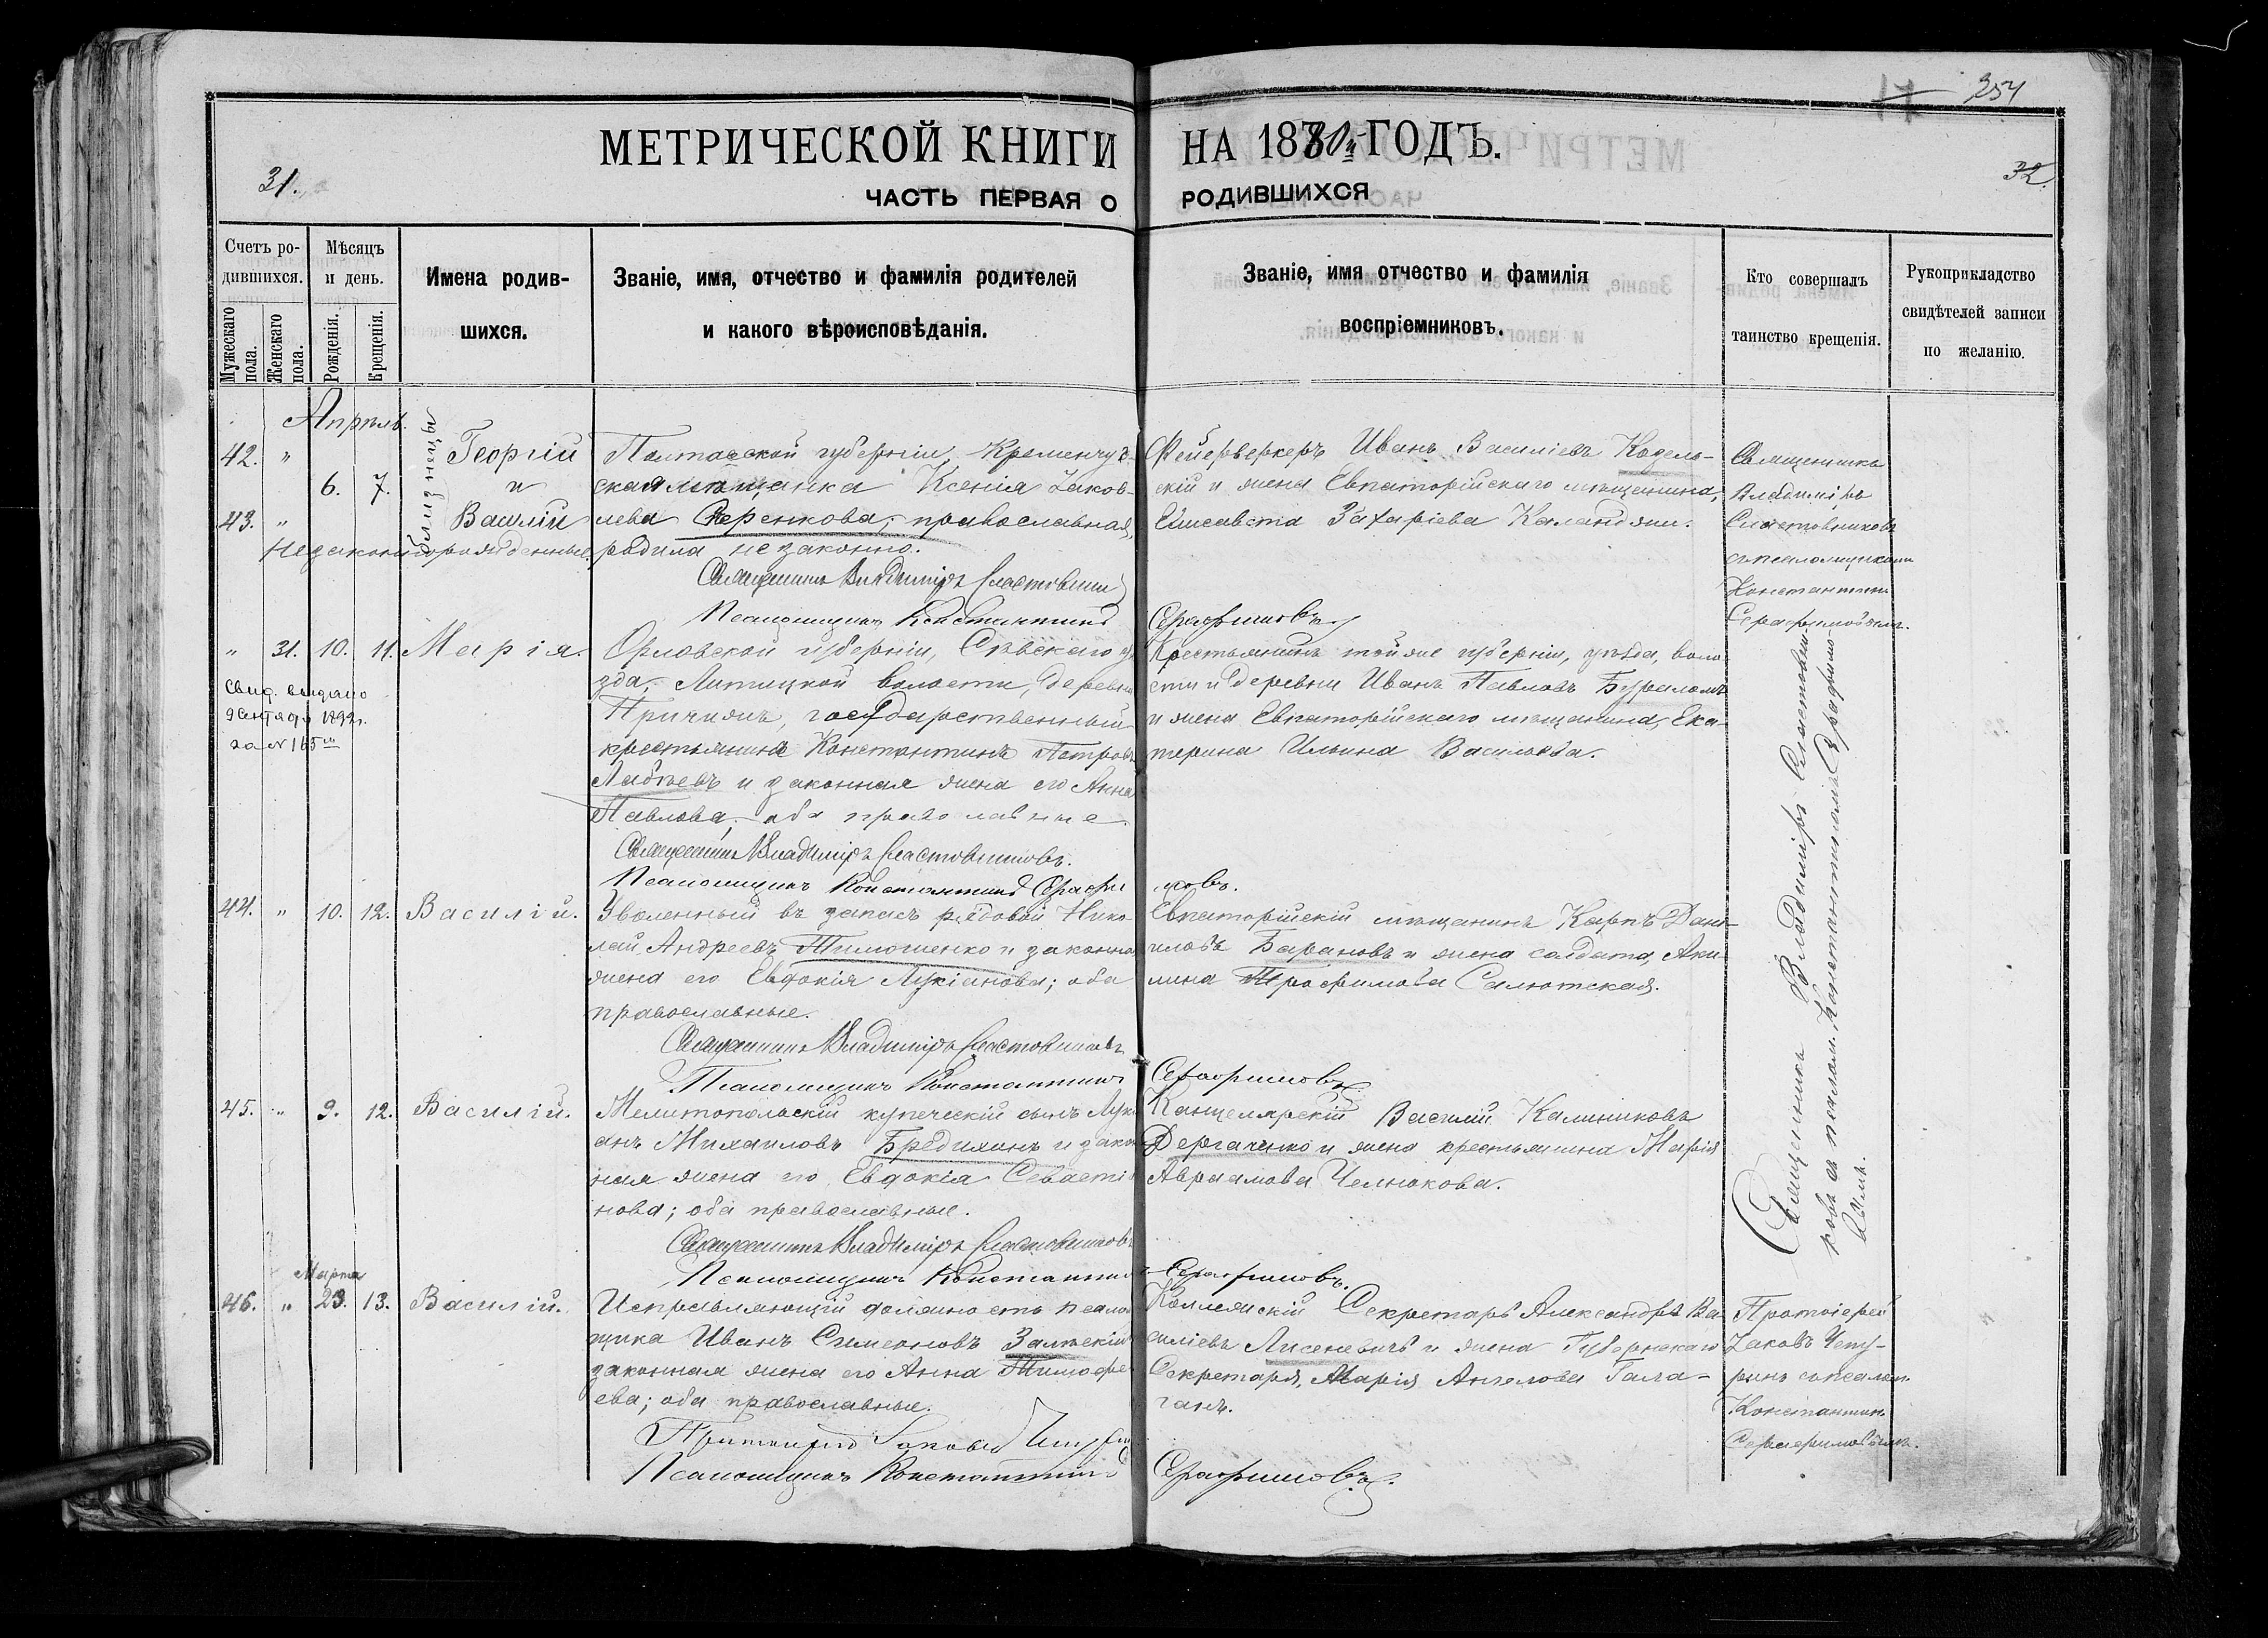 254
31.
МЕТРИЧЕСКОЙ КНИГИ НА 1880й ГОДЪ.
32.
ЧАСТЬ ПЕРВАЯ О РОДИВШИХСЯ
Счетъ ро-
дившихся.
Мужескаго пола.
Женскаго пола.
Мѣсяцъ
и день.
Рожденія.
Крещенія.
Имена родив-
шихся.
Званіе, имя, отчество и фамилія родителей
и какого вѣроисповѣданія.
Званіе, имя отчество и фамилія
воспріемниковъ.
Кто совершалъ
таинство крещенія.
Рукоприкладство
свидѣтелей записи
по желанію.
Апрѣль.
42. "
6. 7.
43. "
близнецы
Георгій
и
Василій
незаконнорожденные.
Полтавской губерніи, Кременчуг-
ская мѣщанка Ксенія Іаков-
лева Серенкова, православная,
родила незаконно.
Священникъ Владиміръ Сластовников
Псаломщикъ Константинъ Серафимовъ
Фейерверкеръ Иванъ Василіевъ Козель-
скій и жена Евпаторійскаго мѣщанина,
Елисавета Захаріева Каландяи.
Священникъ
Владиміръ
Сластовниковъ
съ псаломщикомъ
Константин.
Серафимовымъ.
" 31. 10. 11. Марія.
Свид. выдано
9 Сентября 1892 г.
за № 165 м
Орловской губерніи, Сѣвскаго уѣ
зда, Литицкой волости, деревни
Причижъ, государственный
крестьянинъ Константинъ Петровъ
Лабѣевъ и законная жена его Анна
Павлова, оба православные.
Священникъ Владиміръ Сластовниковъ.
Псаломщикъ Константинъ Серафимовъ.
Крестьянинъ той же губерніи, уѣзда, воло-
сти и деревни Иванъ Павловъ Бурлаковъ
и жена Евпаторійскаго мѣщанина, Ека-
терина Ильина Васильева.
44. " 10. 12. Василій.
Уволенный въ запасъ рядовой Нико-
лай Андреевъ Тимошенко и законная
жена его Евдокія Лукіанова; оба
православные.
Священникъ Владиміръ Сластовниковъ
Псаломщикъ Константинъ Серафимовъ
Евпаторійскій мѣщанинъ Карпъ Дани-
иловъ Барановъ и жена солдата, Аки-
лина Трофимова Салютская.
Священникъ Владиміръ Сластовни-
ковъ съ псалом. Константиномъ Серафимо-
вымъ.
45. " 9. 12. Василій.
Мелитопольскій купеческій сынъ Луки
анъ Михаиловъ Бредихинъ и закон
ная жена его, Евдокія Севасті
нова; оба православные.
Священникъ Владиміръ Сластовниковъ
Псаломщикъ Константинъ Серафимовъ.
Канцелярскій Василій Калиниковъ
Дергаченко и жена крестьянина Марія
Авраамова Челнокова.
Марта
46. " 23. 13. Василій.
Исправляющій должность псалом
щика Иванъ Симеоновъ Залѣскій
законная жена его Анна Тимофе
ева; оба православные.
Протоіерей Іаковъ Чепуринъ
Псаломщикъ Константинъ Серафимовъ.
Коллежскій Секретарь Александръ Ва
силіевъ Лисеневичъ и жена Губернскаго
Секретаря, Марія Ангелова Гала-
ганъ.
Протоіерей
Іаковъ Чепу-
ринъ съ псалом.
Константин.
Серафимовымъ.